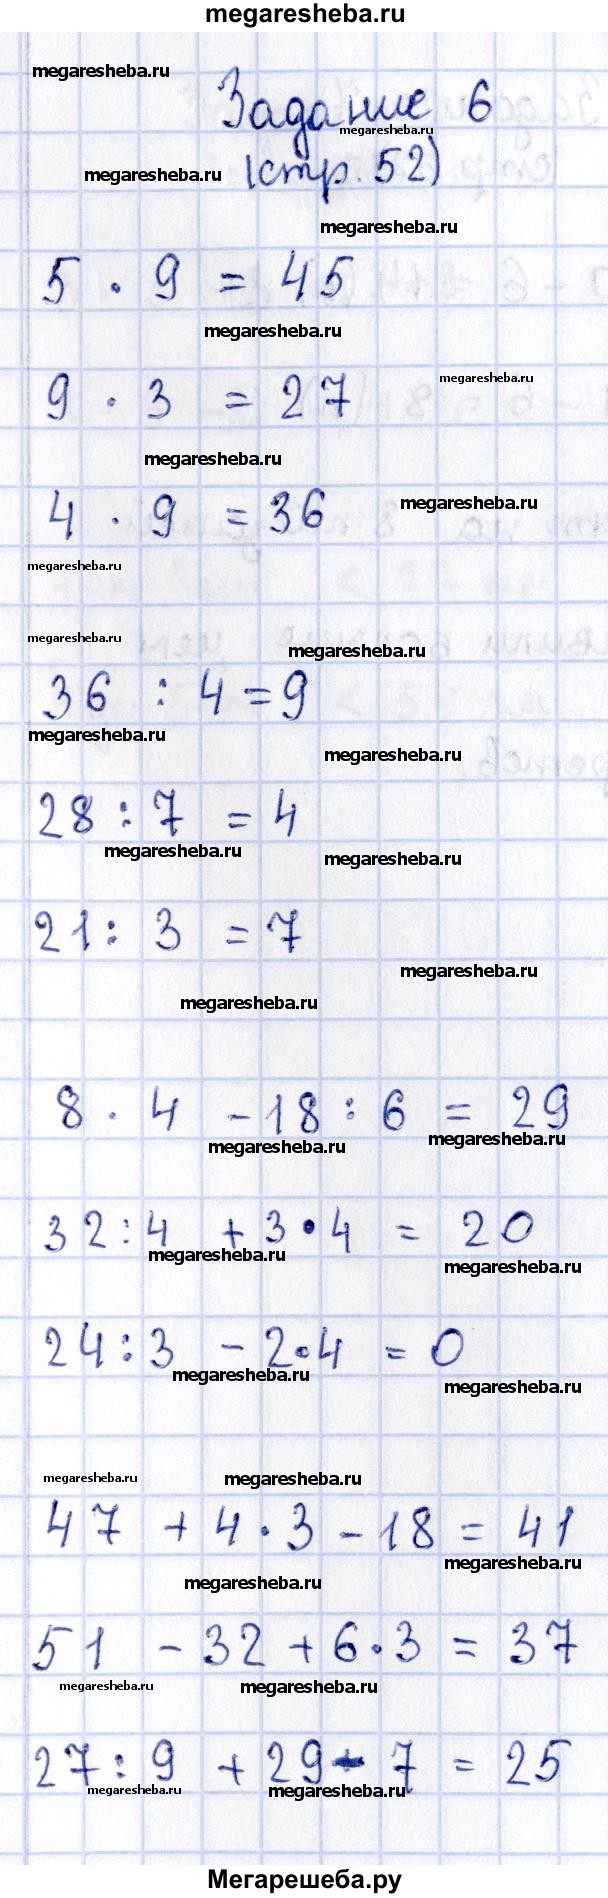 megaresheba.ru
megaresheba.ru
Задание 6
megaresheba.ru
megaresheba.ru
(стр. 52)
megaresheba.ru
5 · 9 = 45
megaresheba.ru
megaresheba.ru
9 · 3 = 27
megaresheba.ru
megaresheba.ru
4 · 9 = 36
megaresheba.ru
megaresheba.ru
megaresheba.ru
36 : 4 = 9
megaresheba.ru
megaresheba.ru
28 : 7 = 4
megaresheba.ru
megaresheba.ru
21 : 3 = 7
megaresheba.ru
megaresheba.ru
8 · 4 - 18 : 6 = 29
megaresheba.ru
megaresheba.ru
32 : 4 + 3 · 4 = 20
megaresheba.ru
megaresheba.ru
24 : 3 - 2 · 4 = 0
megaresheba.ru
megaresheba.ru
megaresheba.ru
megaresheba.ru
47 + 4 · 3 - 18 = 41
megaresheba.ru
megaresheba.ru
51 - 32 + 6 · 3 = 37
megaresheba.ru
megaresheba.ru
27 : 9 + 29 - 7 = 25
megaresheba.ru
megaresheba.ru
Мегарешеба.ру